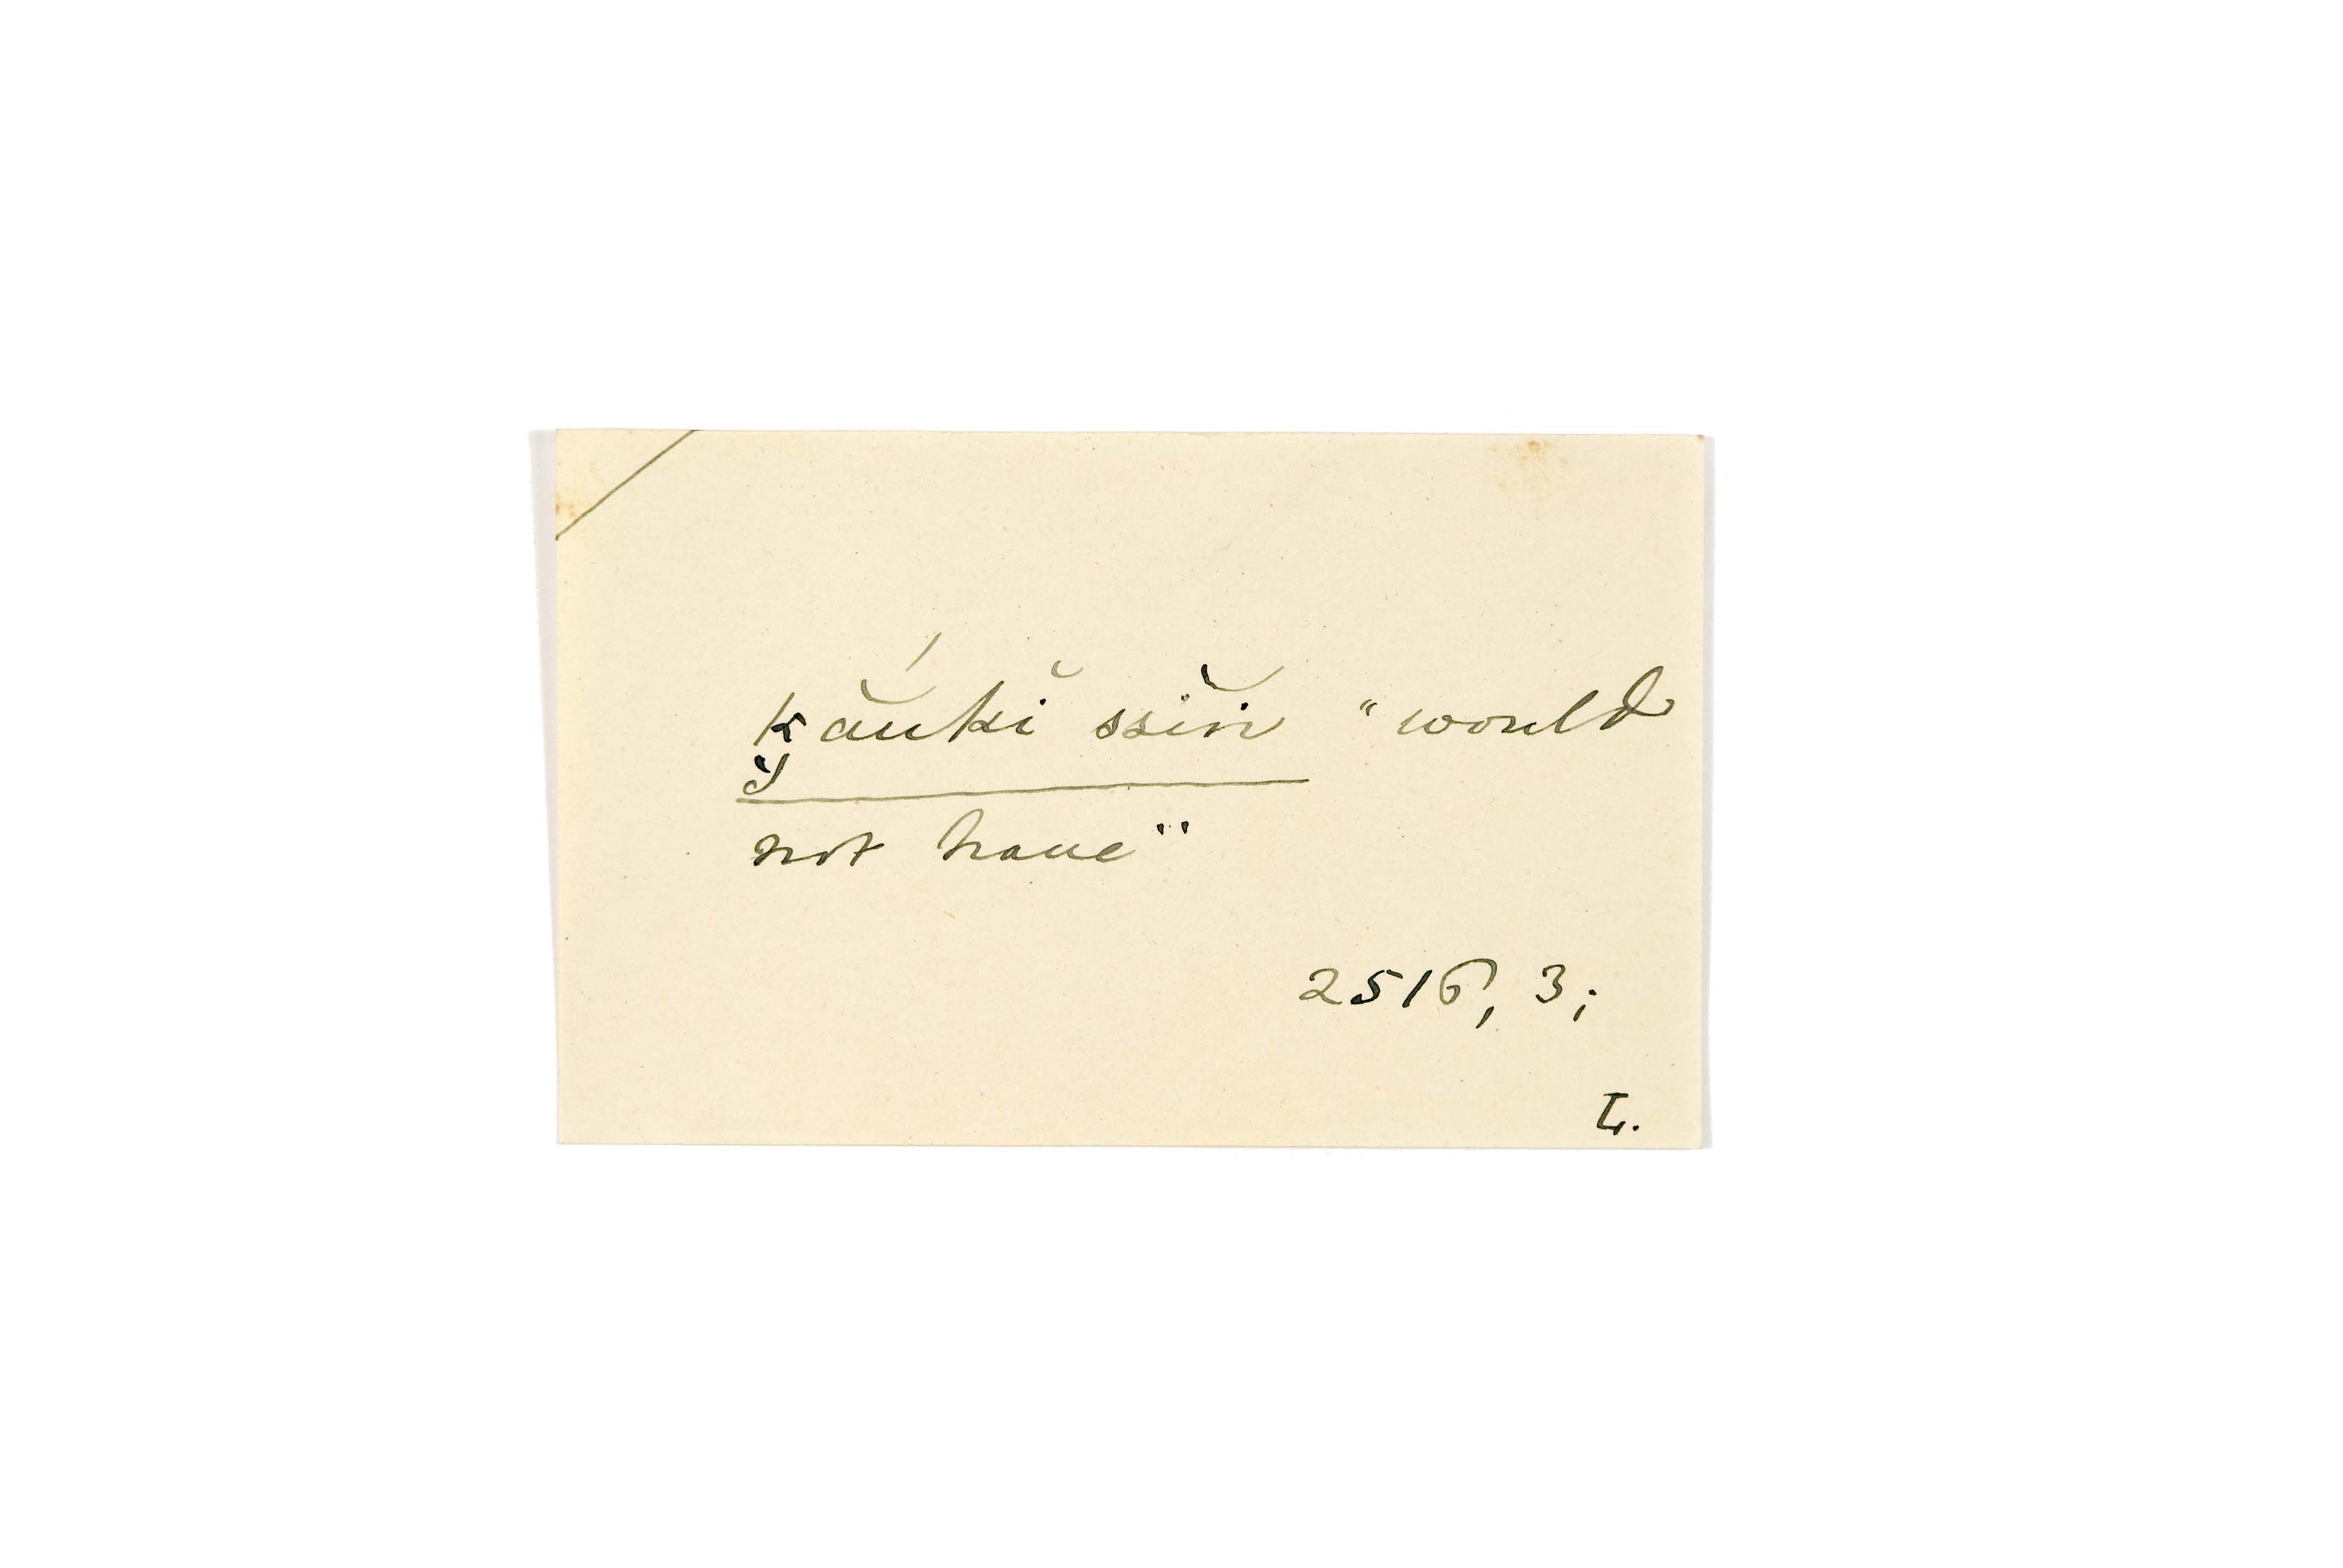 kắukĭ ssĭn "would
y
not have"
2516, 3;
L.